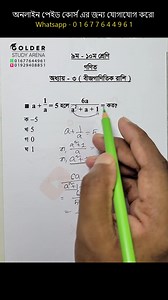 অনলাইন পেইড কোর্স এর জন্য যোগাযোগ করো
Whatsapp - 01677644961
GOLDER
STUDY ARENA
01677644961
01192841985
৯ম - ১০ম শ্রেণি
গণিত
অধ্যায় - ৩ ( বীজগাণিতিক রাশি )
■ a + 1/a = 5 হলে 6a/(a² + a + 1) = কত?
ক -5
খ 5
গ 0
ঘ 1
a + 1/a = 5